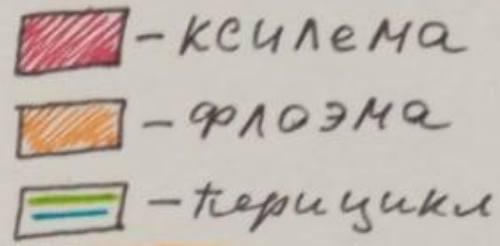 - ксилема
- флоэма
- перицикл